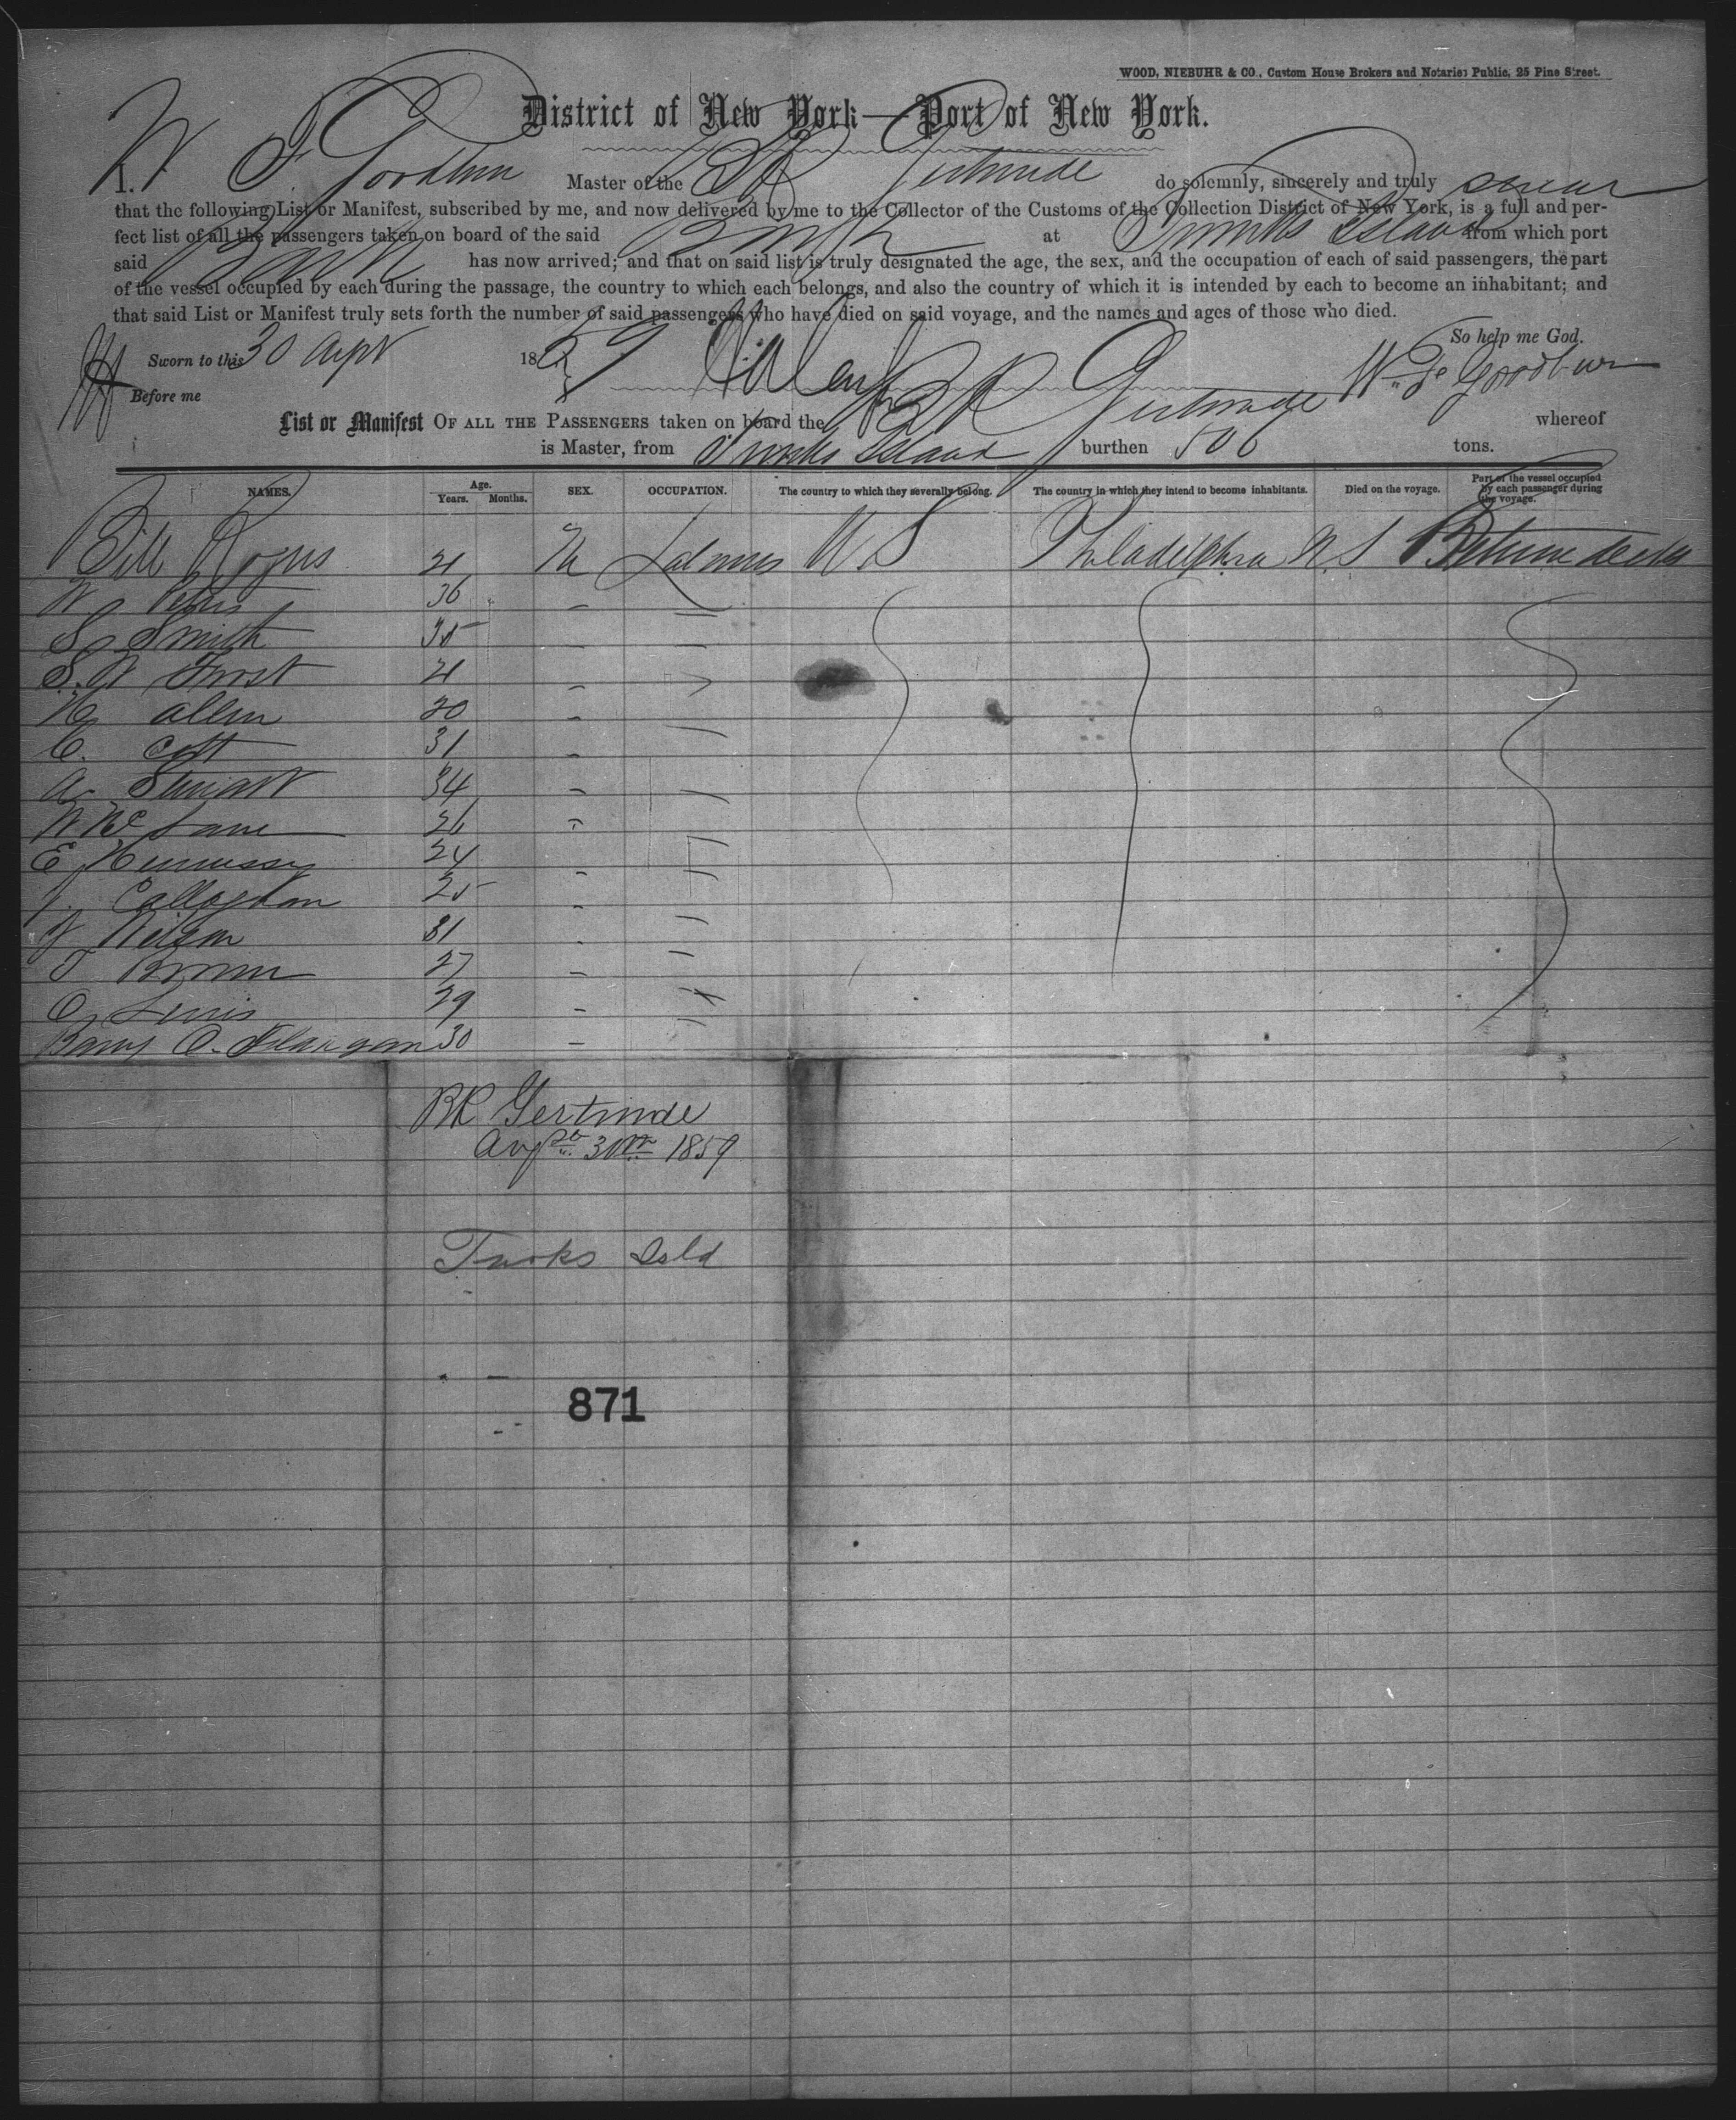 WOOD, NIEBUHR & CO., Custom House Brokers and Notaries Public, 25 Pine Street.
District of New York—Port of New York.
I, W F Goodburn Master of the BK Gertrude do solemnly, sincerely and truly swear
that the following List or Manifest, subscribed by me, and now delivered by me to the Collector of the Customs of the Collection District of New York, is a full and per-
fect list of all the passengers taken on board of the said Bark at Turks Island from which port
said Bark has now arrived; and that on said list is truly designated the age, the sex, and the occupation of each of said passengers, the part
of the vessel occupied by each during the passage, the country to which each belongs, and also the country of which it is intended by each to become an inhabitant; and
that said List or Manifest truly sets forth the number of said passengers who have died on said voyage, and the names and ages of those who died.
So help me God.
Sworn to this 30 1859 Wm F Goodburn
Before me
List or Manifest OF ALL THE PASSENGERS taken on board the BK Gertrude whereof
is Master, from Turks Island burthen 500 tons.
NAMES. Age. Years. Months. SEX. OCCUPATION. The country to which they severally belong. The country in which they intend to become inhabitants. Died on the voyage. Part of the vessel occupied by each passenger during the voyage.
Bill Rogers 21 M U S Philadelphia Between decks
W Peters 36
S Smith 35
S. W Frost 21
H Allen 20
C. Colt 31
A Stewart 34
W Mc Lane 26
E Hennessy 24
J. Callaghan 25
J Nelson 31
T Brown 27
C Lewis 29
Barny O. Flanigan 30
BK Gertrude
30th 1859
Turks Isld
871